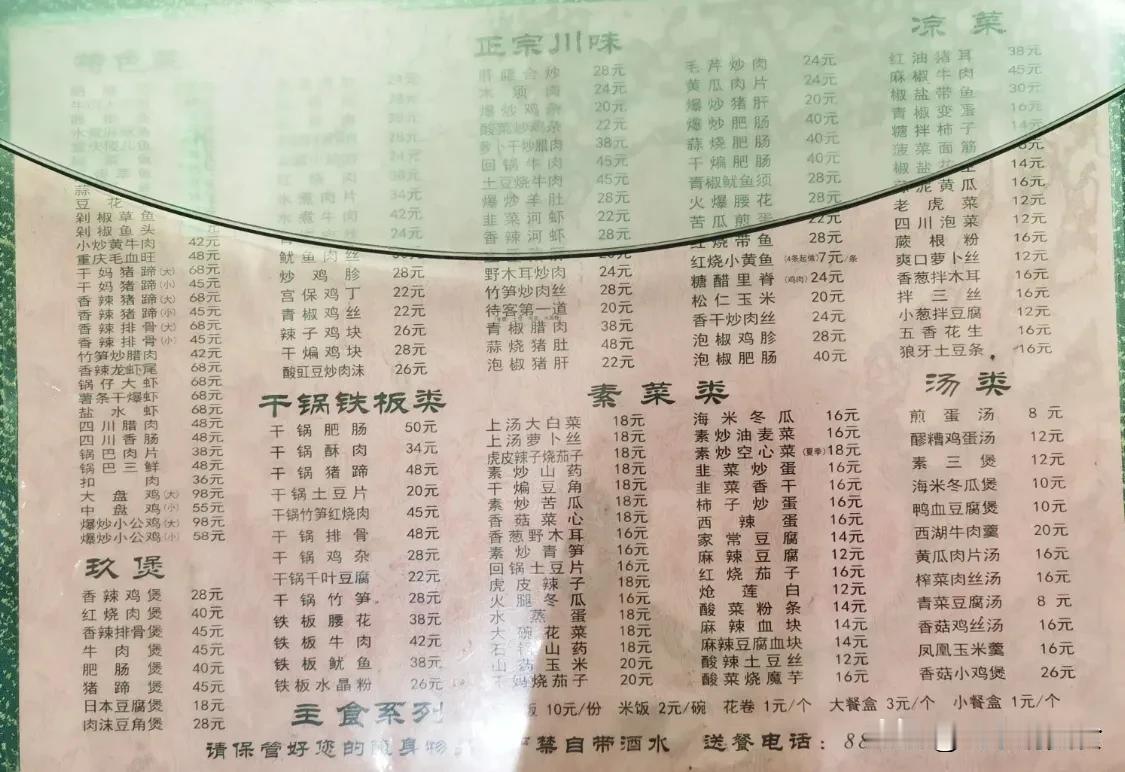 剁椒草鱼
剁椒鱼头
小炒黄牛肉 42元
重庆毛血旺 48元
干妈猪蹄(大) 68元
干妈猪蹄(小) 45元
香辣猪蹄(大) 68元
香辣猪蹄(小) 45元
香辣排骨(大) 68元
香辣排骨(小) 45元
竹笋炒腊肉 42元
香辣龙虾尾 68元
锅仔大虾 68元
薯条干爆虾 68元
盐水虾 68元
四川腊肉 48元
四川香肠 48元
锅巴肉片 38元
锅巴三鲜 48元
扣肉 36元
大盘鸡(大) 98元
中盘鸡(小) 55元
爆炒小公鸡(大) 98元
爆炒小公鸡(小) 58元
玖煲
香辣鸡煲 28元
红烧肉煲 40元
香辣排骨煲 45元
牛肉煲 45元
肥肠煲 40元
猪蹄煲 45元
日本豆腐煲 18元
肉沫豆角煲 28元
水煮肉片 34元
水煮牛肉 42元
鱿鱼肉丝
炒鸡胗 28元
宫保鸡丁 22元
青椒鸡丝 22元
辣子鸡块 26元
干煸鸡块 28元
酸豇豆炒肉沫 26元
干锅铁板类
干锅肥肠 50元
干锅酥肉 34元
干锅猪蹄 48元
干锅土豆片 20元
干锅竹笋红烧肉 45元
干锅排骨 48元
干锅鸡杂 28元
干锅千叶豆腐 22元
干锅竹笋 28元
铁板腰花 38元
铁板牛肉 42元
铁板鱿鱼 38元
铁板水晶粉 26元
正宗川味
28元
木须肉 24元
爆炒鸡杂 20元
酸菜炒鸡杂 22元
萝卜干炒腊肉 38元
回锅牛肉 45元
土豆烧牛肉 45元
爆炒羊肚 28元
韭菜河虾 22元
香辣河虾 28元
野木耳炒肉 24元
竹笋炒肉丝 28元
待客第一道 20元
青椒腊肉 38元
蒜烧猪肚 48元
泡椒猪肝 22元
毛芹炒肉 24元
黄瓜肉片 24元
爆炒猪肝 20元
爆炒肥肠 40元
蒜烧肥肠 40元
干煸肥肠 40元
青椒鱿鱼须 28元
火爆腰花 28元
苦瓜煎蛋 22元
红烧带鱼 28元
红烧小黄鱼(4条起做) 7元/条
糖醋里脊(鸡肉) 24元
松仁玉米 20元
香干炒肉丝 24元
泡椒鸡胗 28元
泡椒肥肠 40元
素菜类
上汤大白菜 18元
上汤萝卜丝 18元
虎皮辣子烧茄子 18元
素炒山药 18元
干煸豆角 18元
素炒苦瓜 18元
香菇菜心 18元
香葱野木耳 16元
素炒青笋 16元
回锅土豆片 16元
虎皮辣子 18元
火腿冬瓜 16元
水蒸蛋 18元
大碗花菜 18元
石锅山药 18元
山药玉米 20元
干妈烧茄子 20元
海米冬瓜 16元
素炒油麦菜 16元
素炒空心菜(夏季) 18元
韭菜炒蛋 16元
韭菜香干 16元
柿子炒蛋 16元
西辣蛋 16元
家常豆腐 14元
麻辣豆腐 12元
红烧茄子 16元
炝莲白 12元
酸菜粉条 14元
麻辣血块 14元
麻辣豆腐血块 14元
酸辣土豆丝 12元
酸菜烧魔芋 16元
凉菜
红油猪耳 38元
麻椒牛肉 45元
椒盐带鱼 30元
青椒变蛋 16元
糖拌柿子 14元
菠菜面筋
椒盐花生 14元
蒜泥黄瓜 16元
老虎菜 12元
四川泡菜 12元
蕨根粉 16元
爽口萝卜丝 12元
香葱拌木耳 16元
拌三丝 16元
小葱拌豆腐 12元
五香花生 16元
狼牙土豆条 16元
汤类
煎蛋汤 8元
醪糟鸡蛋汤 12元
素三煲 12元
海米冬瓜煲 10元
鸭血豆腐煲 10元
西湖牛肉羹 20元
黄瓜肉片汤 16元
榨菜肉丝汤 16元
青菜豆腐汤 8元
香菇鸡丝汤 16元
凤凰玉米羹 16元
香菇小鸡煲 26元
主食系列 饭 10元/份 米饭 2元/碗 花卷 1元/个 大餐盒 3元/个 小餐盒 1元/个
请保管好您的随身物 严禁自带酒水 送餐电话：88